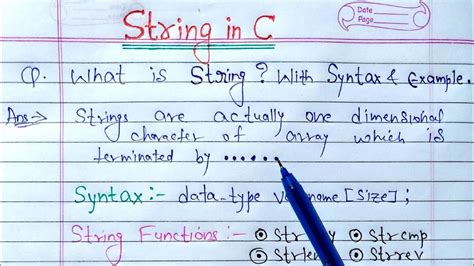 String in C
Date
Page
Q. What is String? With Syntax & Example.
Ans:-> Strings are actually one dimensional
character of array which is
terminated by ......
Syntax:- data-type name[size];
String Functions:- Strcmp
Strlen Strrev